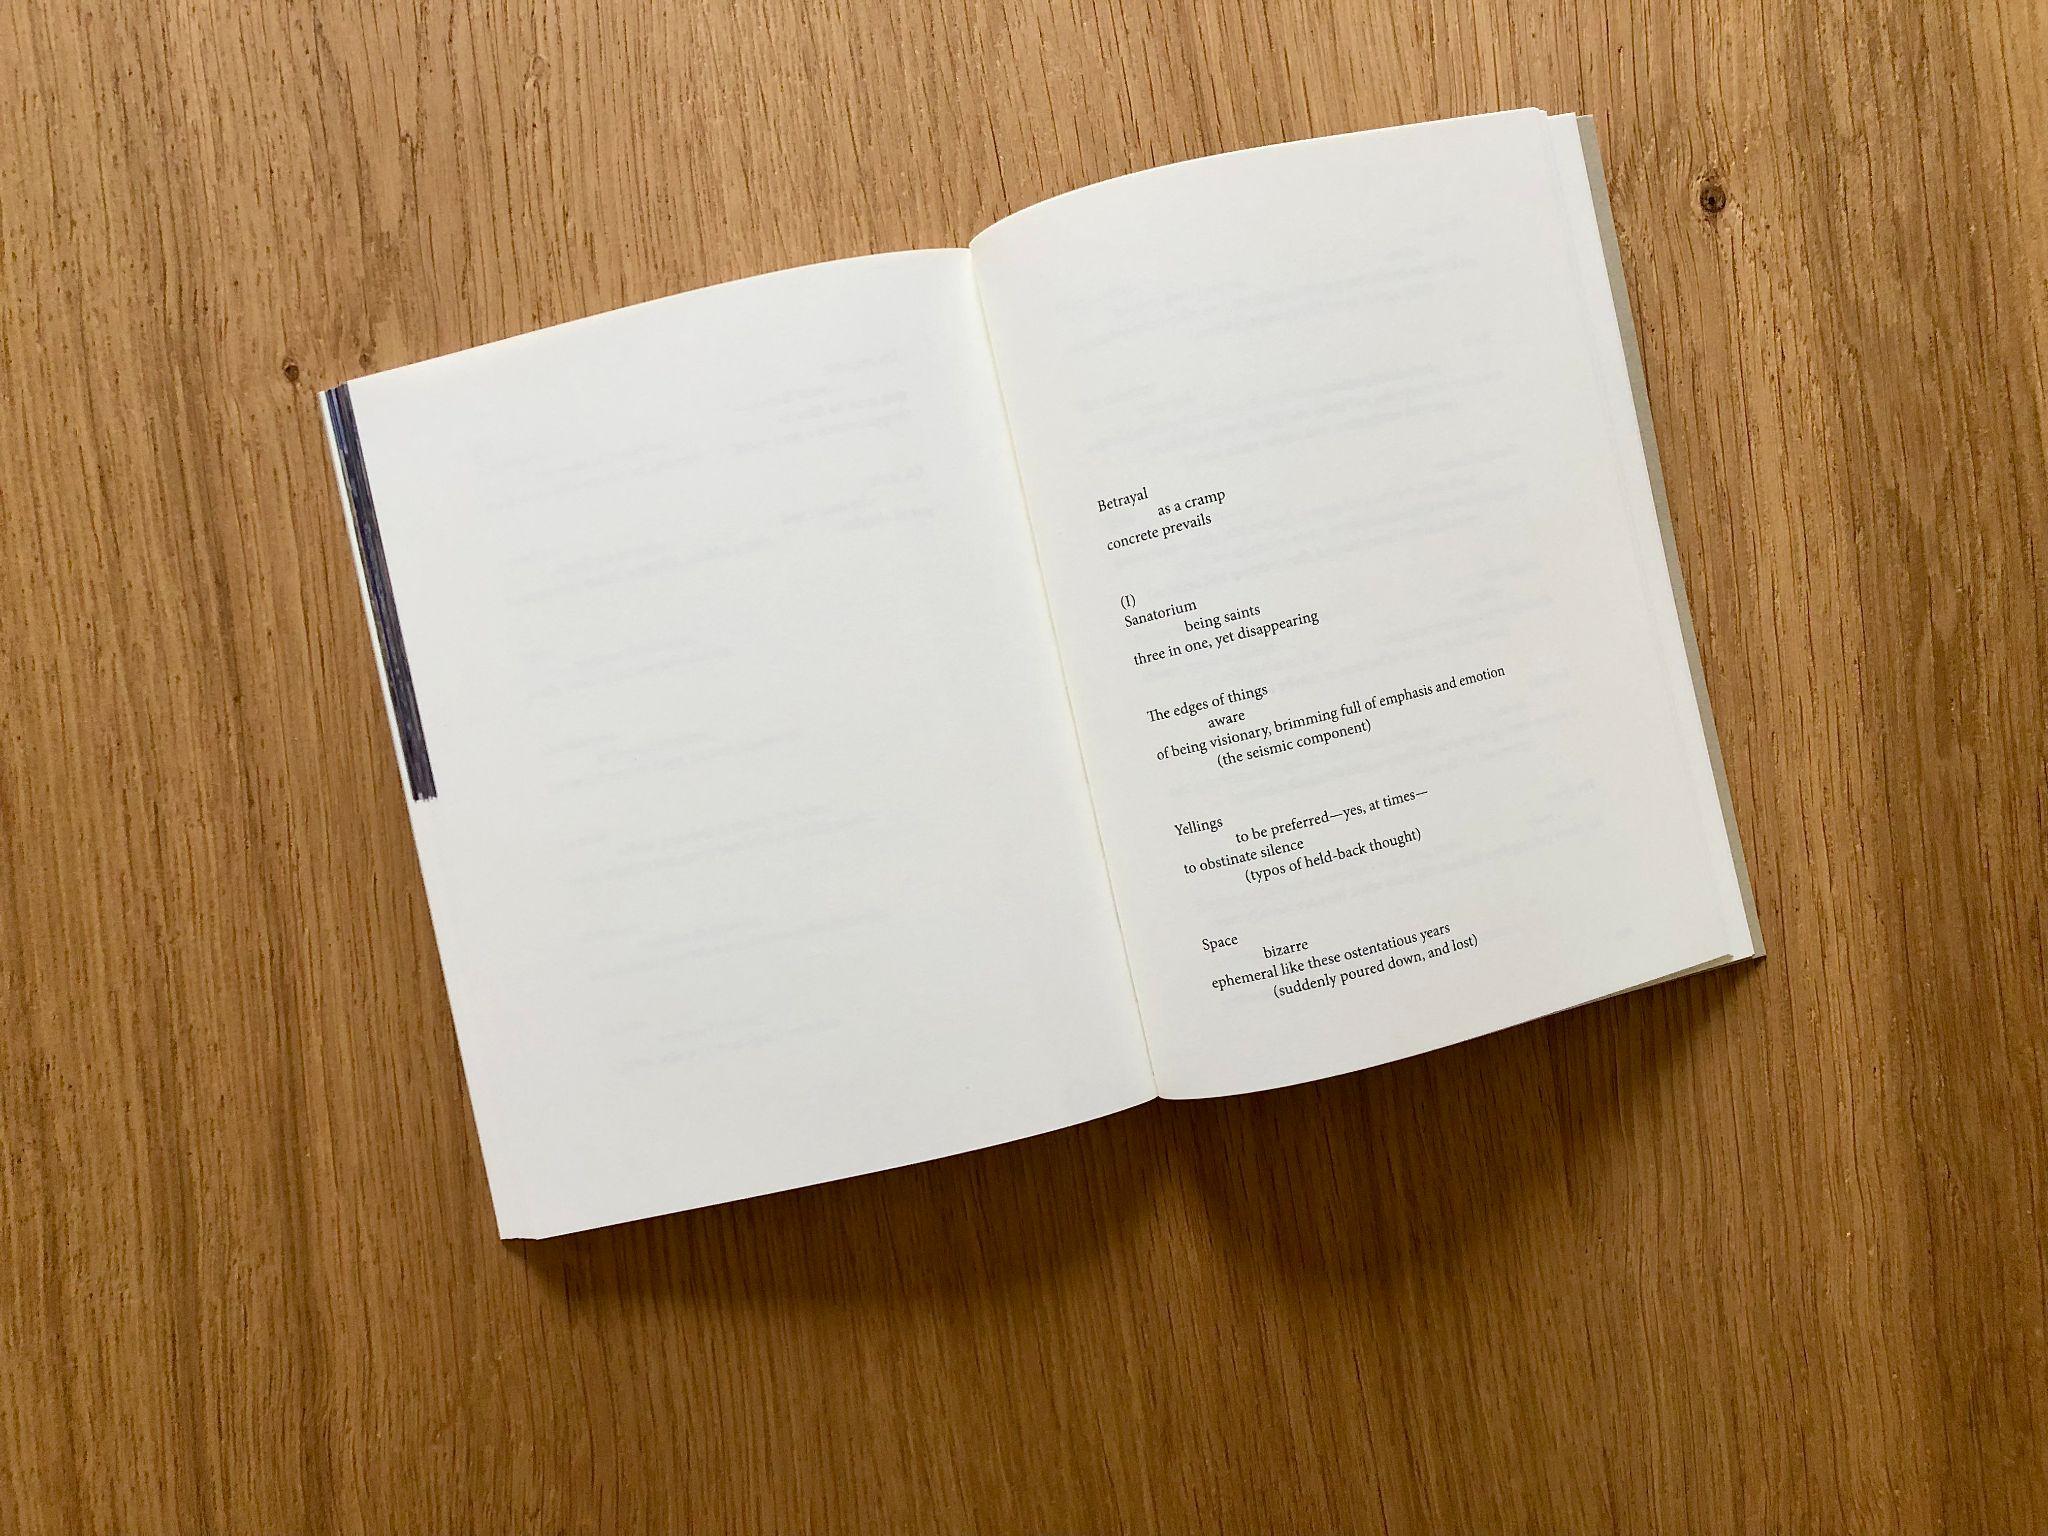 Betrayal
as a cramp
concrete prevails
(I)
Sanatorium
being saints
three in one, yet disappearing
The edges of things
aware
of being visionary, brimming full of emphasis and emotion
(the seismic component)
Yellings
to be preferred—yes, at times—
to obstinate silence
(typos of held-back thought)
Space
bizarre
ephemeral like these ostentatious years
(suddenly poured down, and lost)